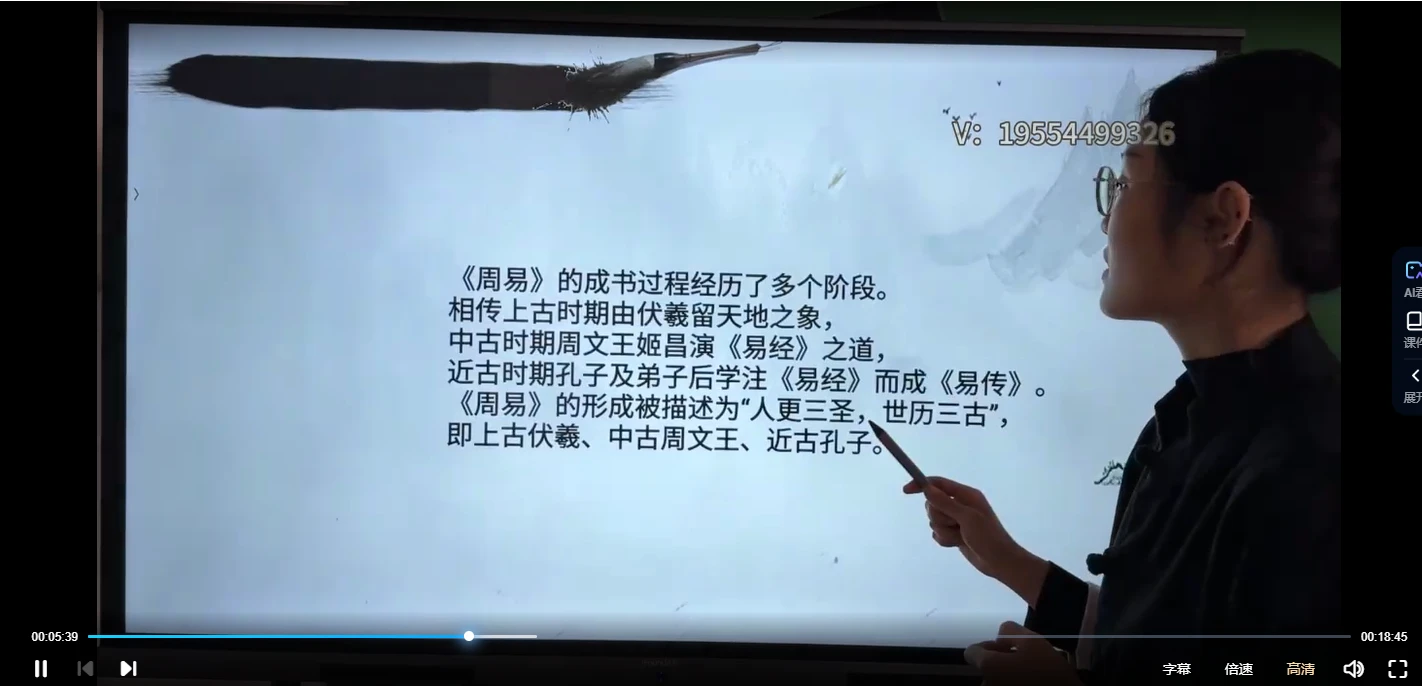 V：19554499326
《周易》的成书过程经历了多个阶段。
相传上古时期由伏羲留天地之象，
中古时期周文王姬昌演《易经》之道，
近古时期孔子及弟子后学注《易经》而成《易传》。
《周易》的形成被描述为“人更三圣，世历三古”，
即上古伏羲、中古周文王、近古孔子。
AI
课件
展开
00:05:39
00:18:45
字幕
倍速
高清